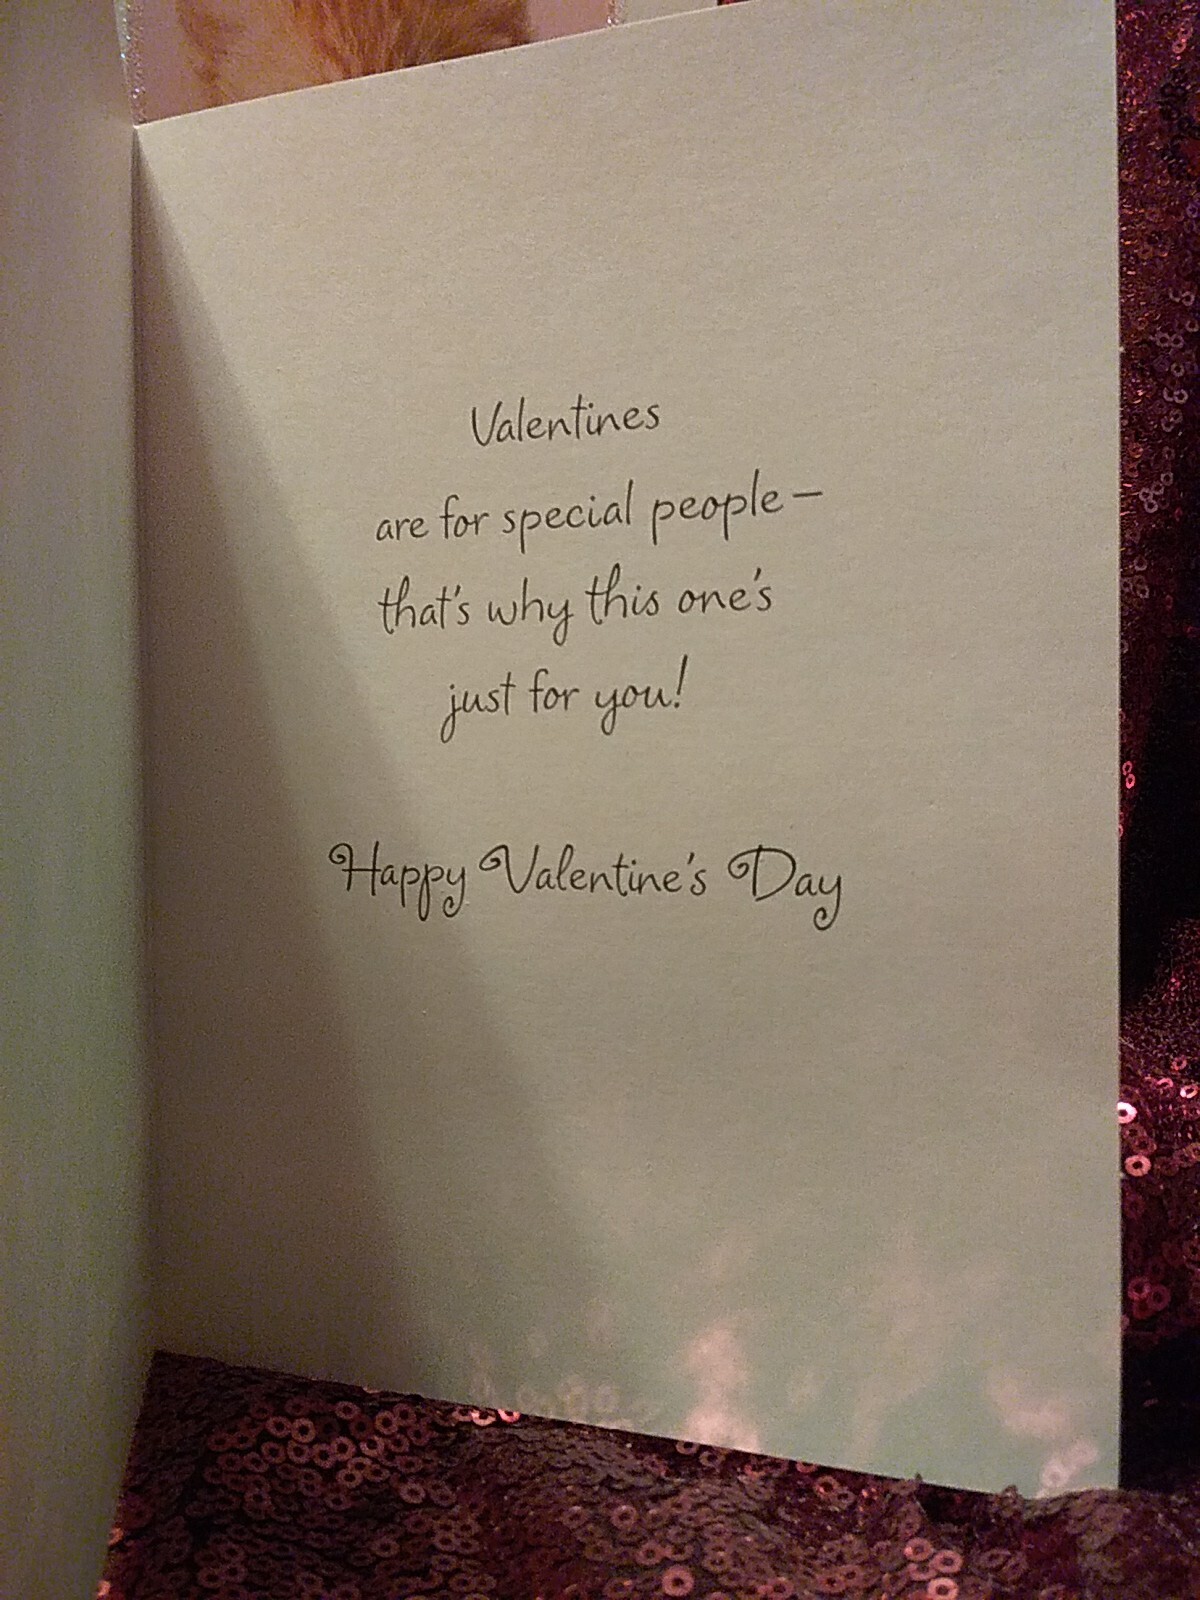 Valentines
are for special people –
that's why this one's
just for you!
Happy Valentine's Day